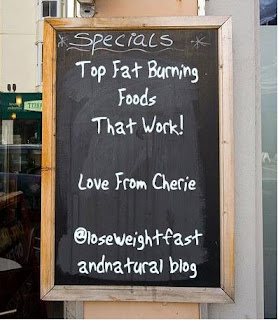 *Specials*
Top Fat Burning
Foods
That Work!
Love From Cherie
@loseweightfast
andnatural blog